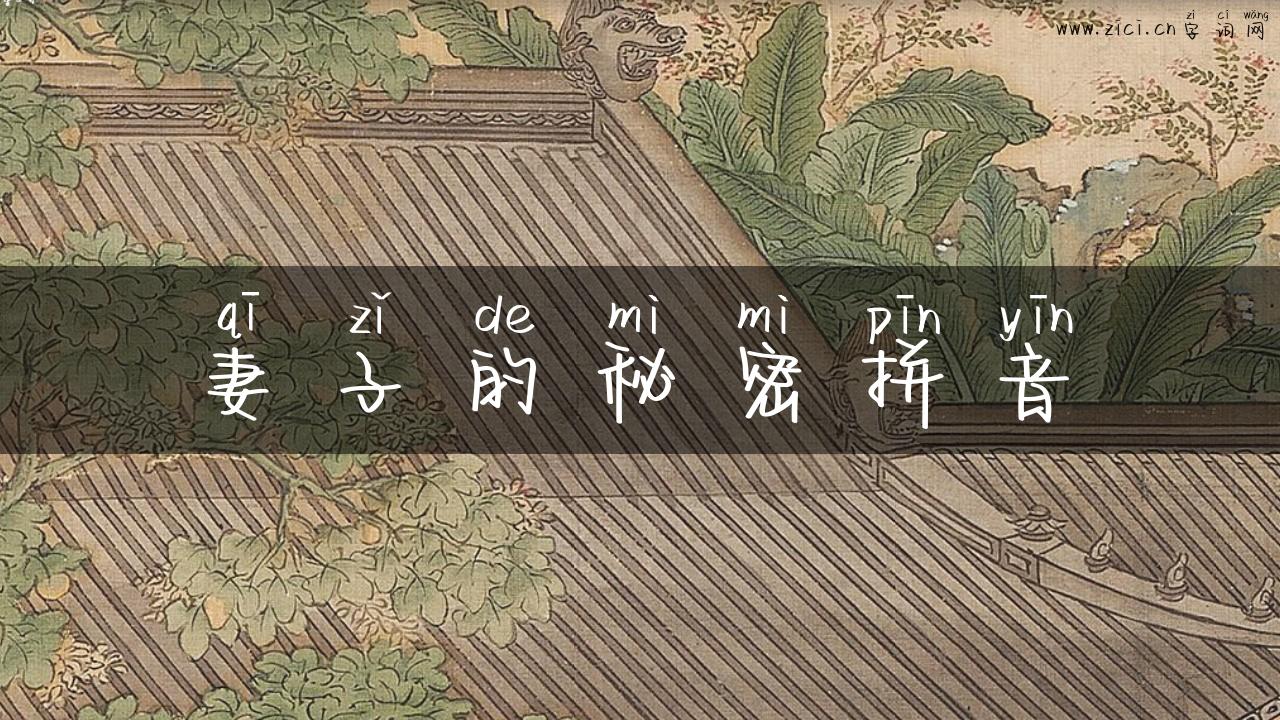 zì cí wǎng
www.zici.cn 字词网
qī zǐ de mì mì pīn yīn
妻子的秘密拼音